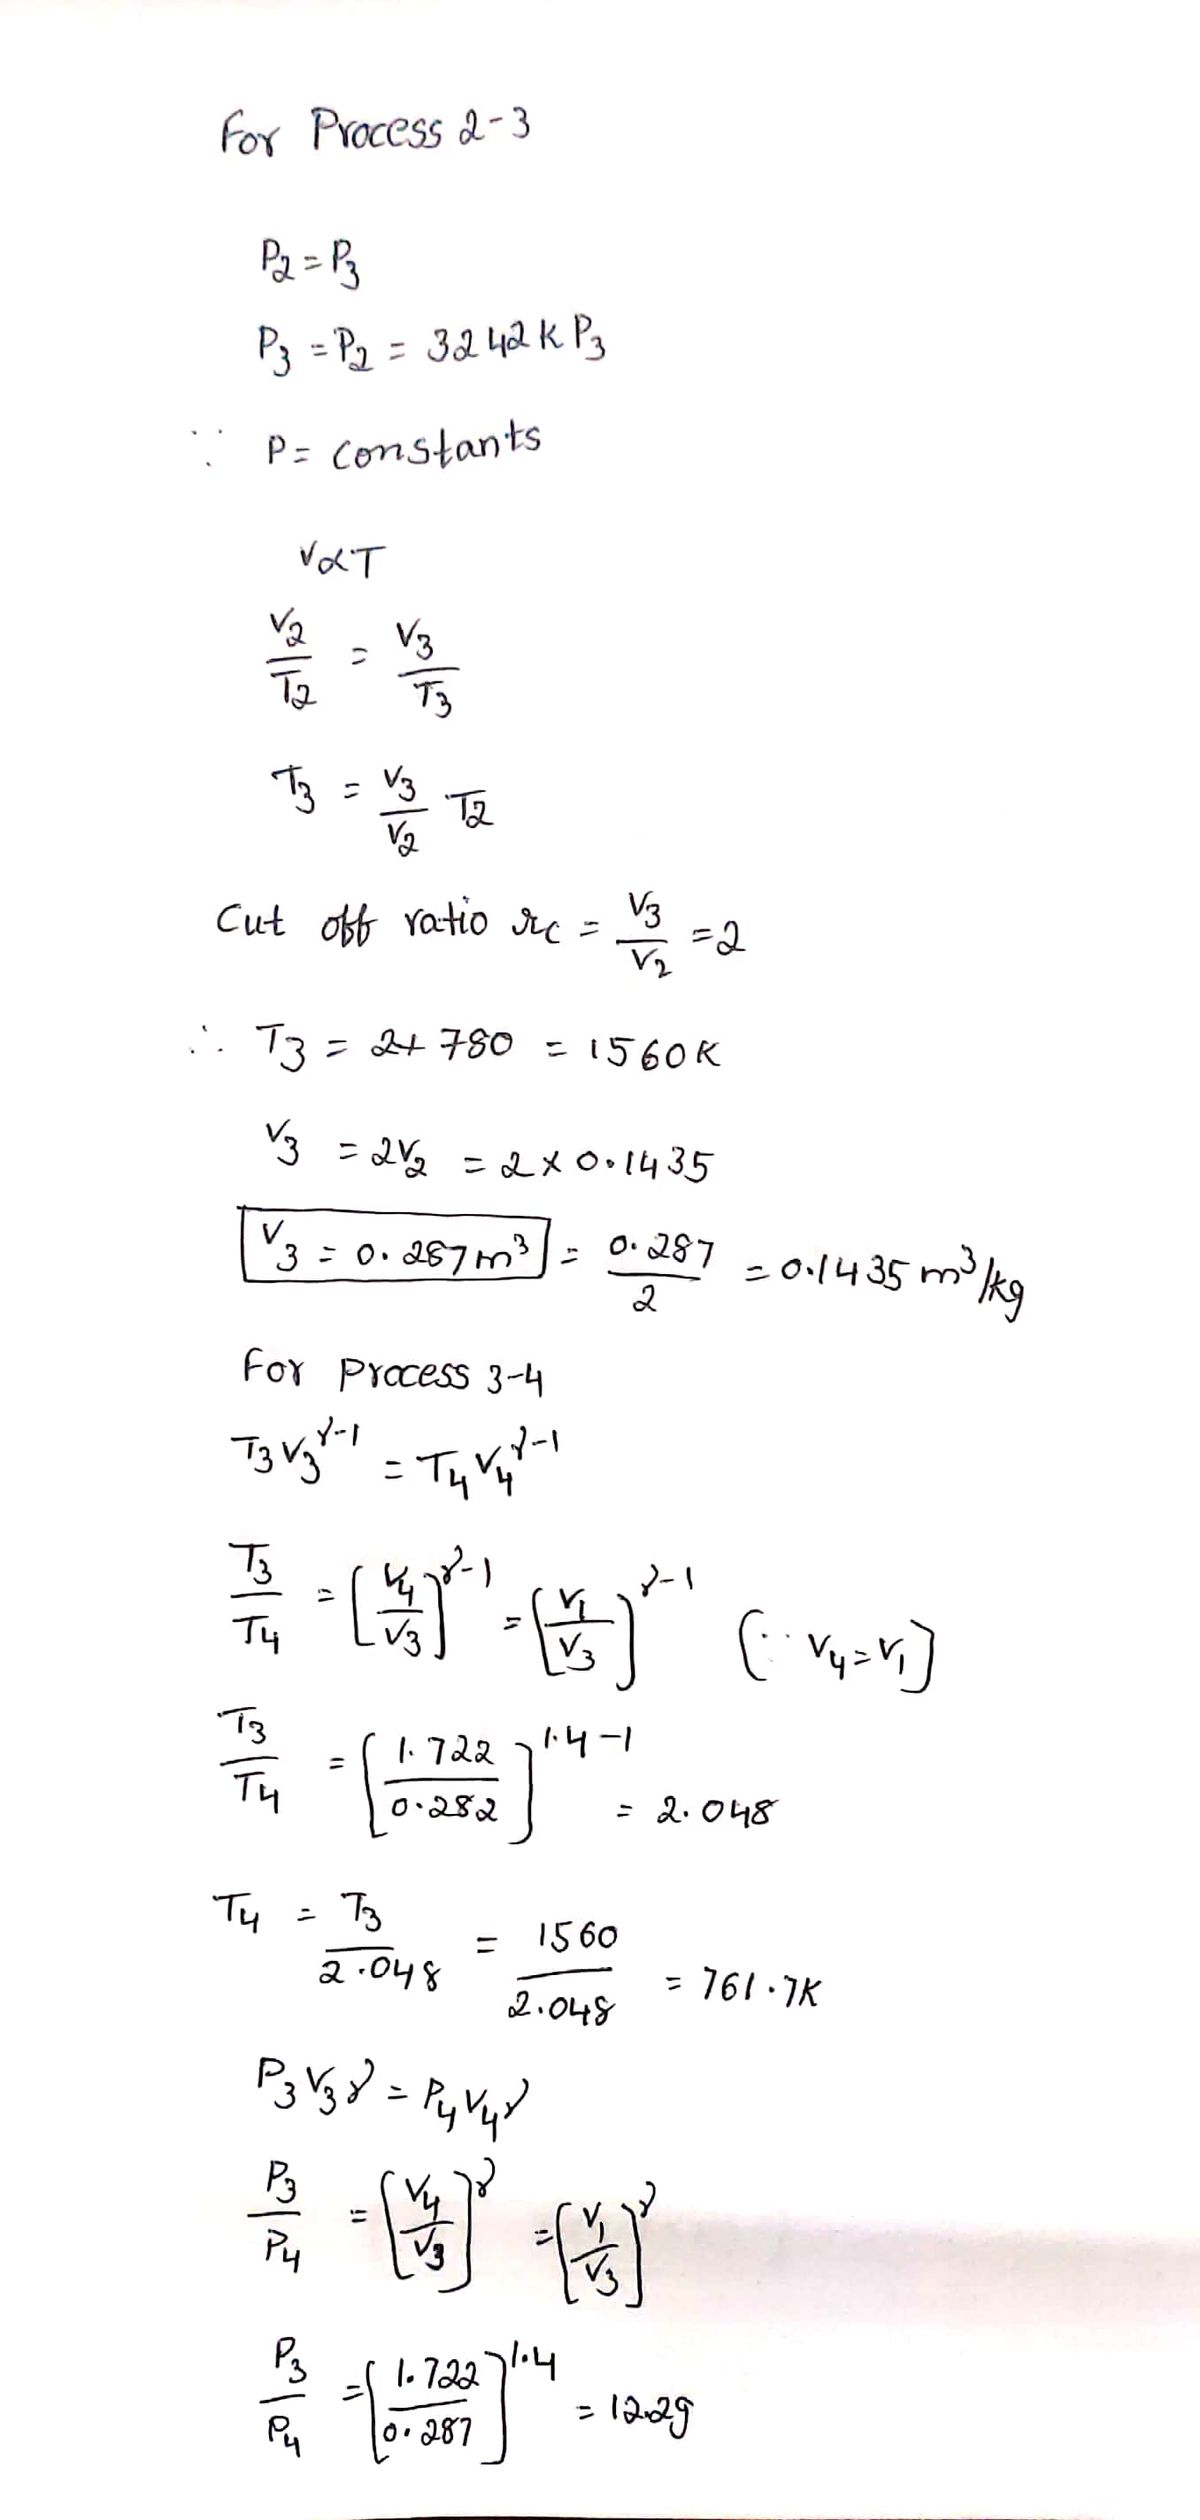 For Process 2-3
P2 = P3
P3 = P2 = 3242 k P3
∵ P = constants
V∝T
V2/T2 = V3/T3
T3 = V3/V2 T2
Cut off ratio rc = V3/V2 = 2
∴ T3 = 2+ 780 = 1560K
V3 = 2V2 = 2 x 0.1435
V3 = 0.287m³ = 0.287/2 = 0.1435 m³/kg
For process 3-4
T3 V3^γ-1 = T4 V4^γ-1
T3/T4 = [V4/V3]^γ-1 = [V1/V3]^γ-1 (∵ V4 = V1]
T3/T4 = [1.722/0.282]^1.4-1 = 2.048
T4 = T3/2.048 = 1560/2.048 = 761.7K
P3 V3γ = P4 V4γ
P3/P4 = [V4/V3]^γ = [V1/V3]^γ
P3/P4 = [1.722/0.287]^1.4 = 12.29